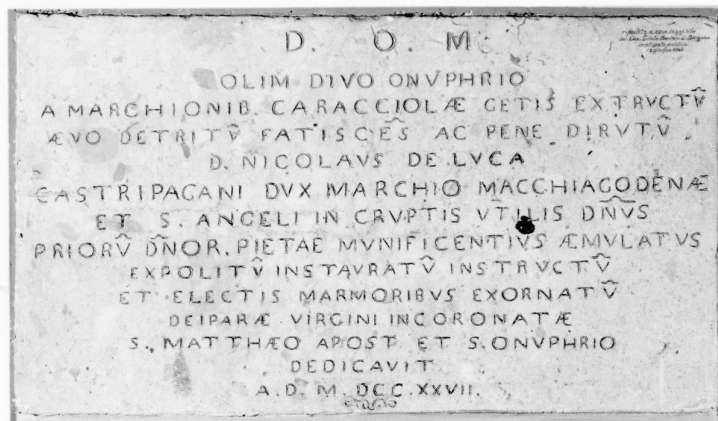 D. O. M
OLIM DIVO ONVPHRIO
A MARCHIONIB. CARACCIOLÆ GETIS EXTRVCTV̂
ÆVO DETRITV̂ FATISCÊS AC PENE DIRVTV̂
D. NICOLAVS DE LVCA
CASTRIPAGANI DVX MARCHIO MACCHIAGODENÆ
ET S. ANGELI IN CRVPTIS VTILIS DÑVS
PRIORV̂ DÑOR. PIETAE MVNIFICENTIVS ÆMVLATVS
EXPOLITV̂ INSTAVRATV̂ INSTRVCTV̂
ET ELECTIS MARMORIBVS EXORNATV̂
DEIPARÆ VIRGINI INCORONATÆ
S. MATTHÆO APOST ET S. ONVPHRIO
DEDICAVIT
A. D. M. DCC. XXVII.